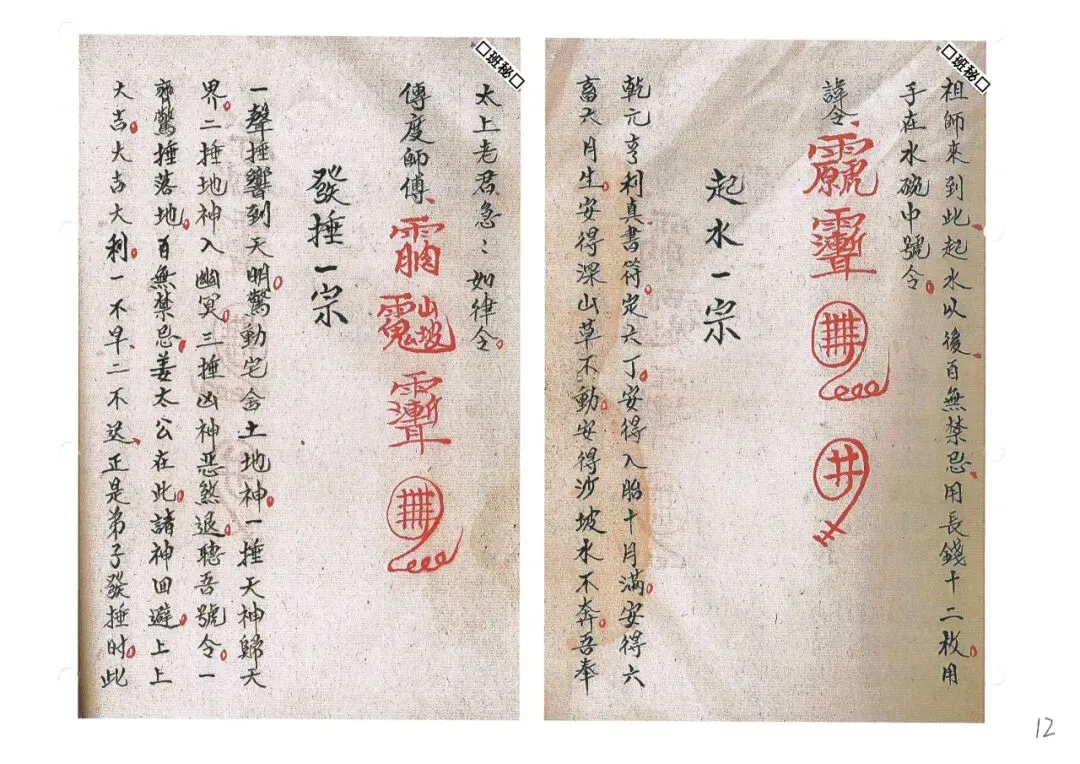 祖師來到此起水以後百無禁忌用長錢十二枚用
手在水碗中號令
諱令
起水一宗
乾元亨利真書符定六丁安得入胎十月滿安得六
畜六月生安得深山草不動安得沙坡水不奔吾奉
太上老君急:如律令
傳度師傅
發捶一宗
一聲捶響到天明驚動宅舍土地神一捶天神歸天
界二捶地神入幽冥三捶凶神惡煞退聽吾號令一
齊驚捶落地百無禁忌姜太公在此諸神回避上上
大吉大吉大利一不早二不迟正是弟子發捶时此
班秘
班秘
12